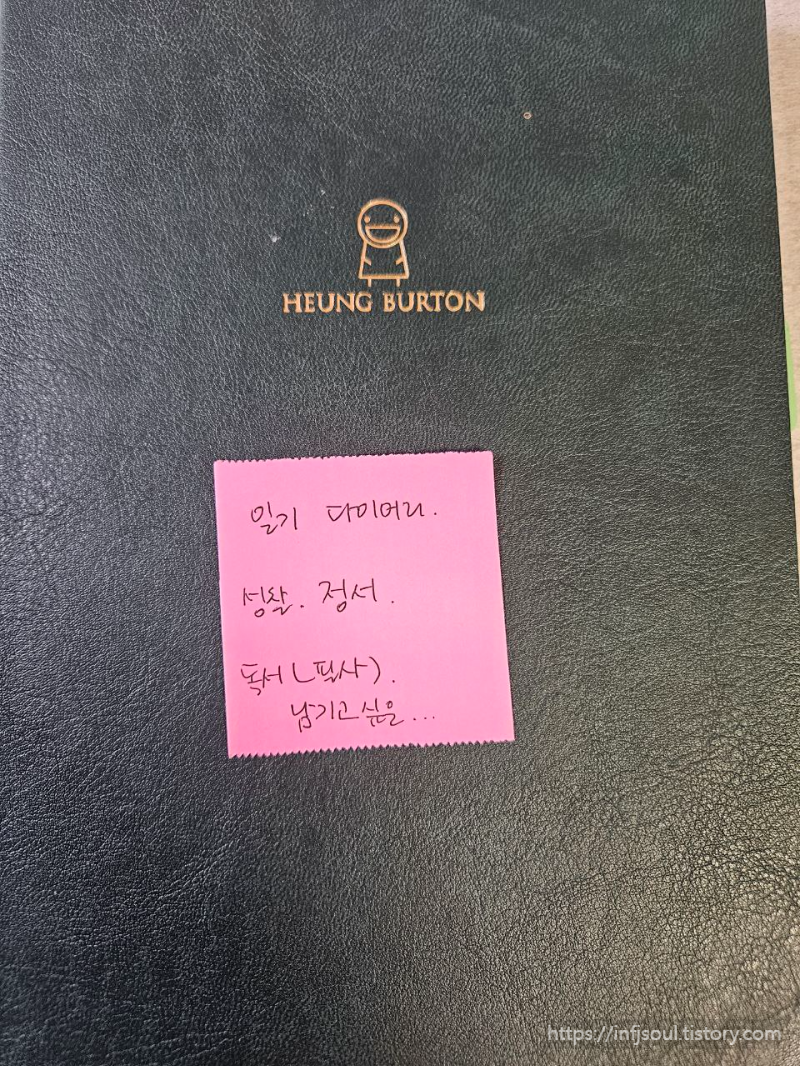 HEUNG BURTON
일기 다이어리.
성찰. 정서.
독서(필사).
남기고 싶은...
https://infjsoul.tistory.com